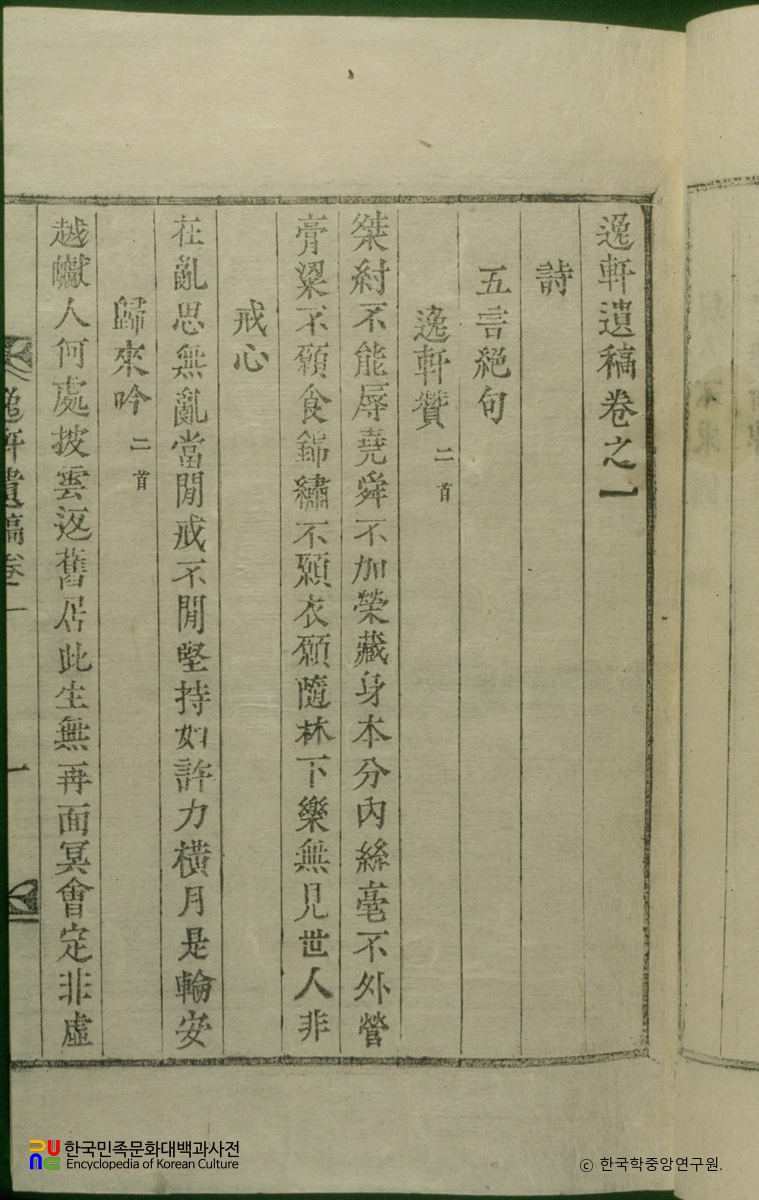 逸軒遺稿卷之一
詩
五言絶句
逸軒贊 二首
桀紂不能辱堯舜不加榮藏身本分內絲毫不外營
膏粱不願食錦繡不願衣願隨林下樂無見世人非
戒心
在亂思無亂當閒戒不閒堅持如許力橫月是輪安
歸來吟 二首
越巘人何處披雲返舊居此生無再面冥會定非虛
逸軒遺稿卷一
一
한국민족문화대백과사전
Encyclopedia of Korean Culture
© 한국학중앙연구원.